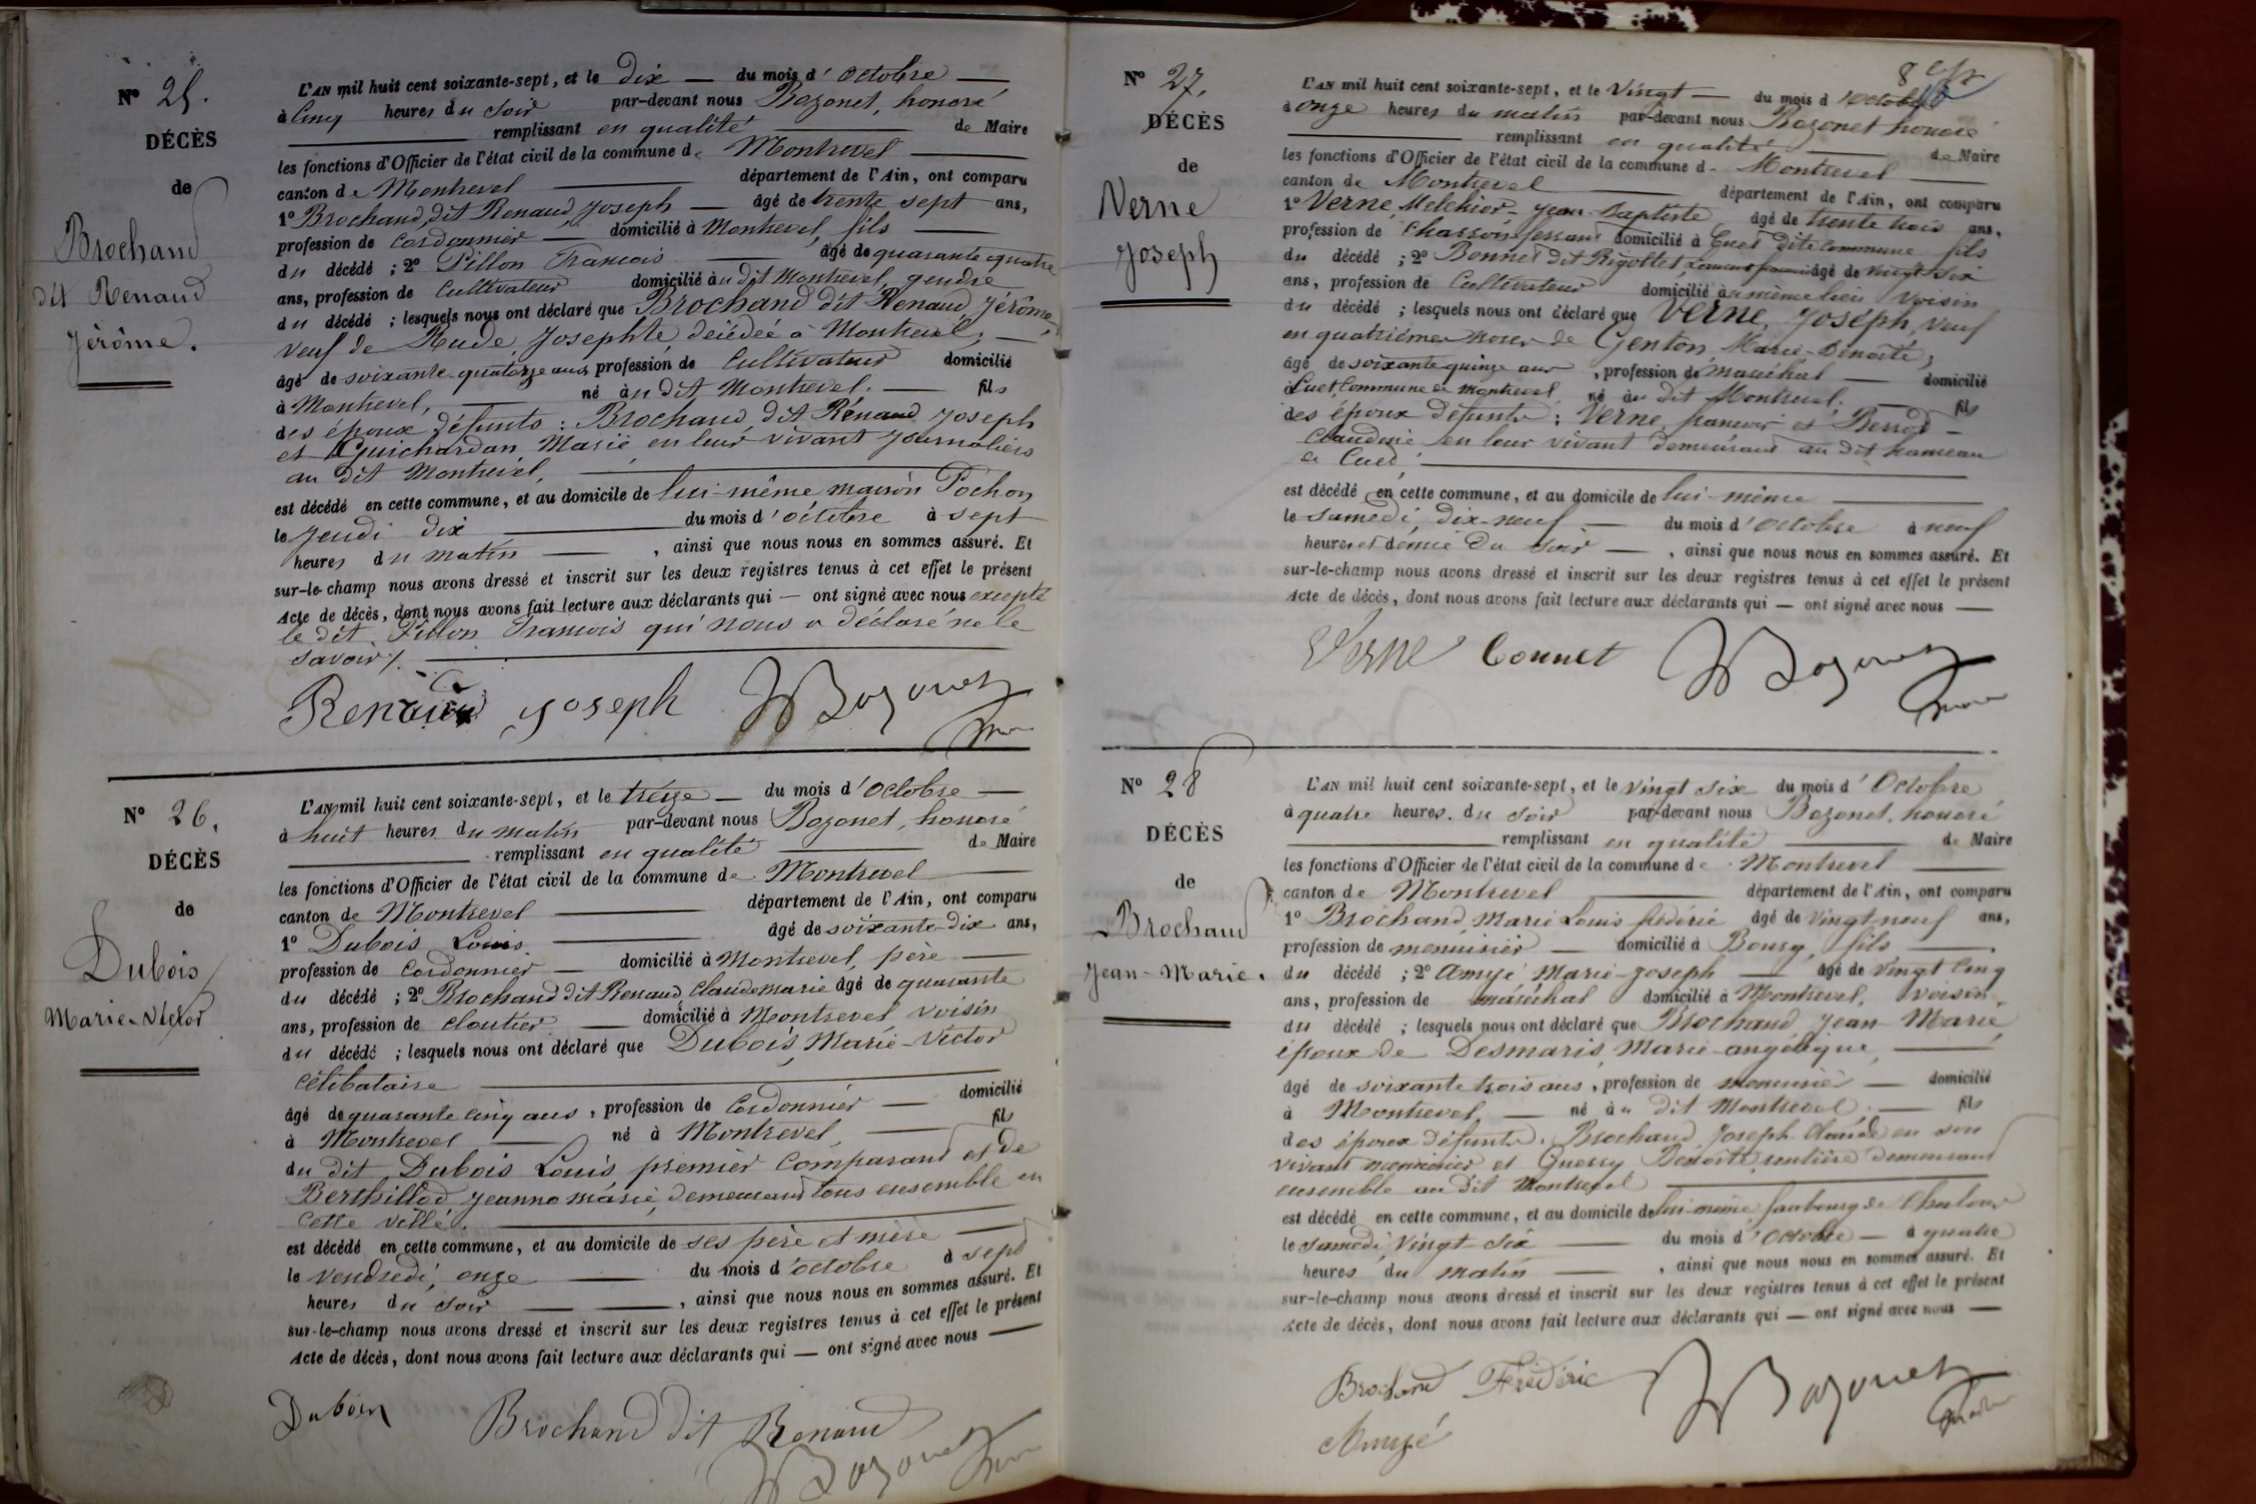 N° 25.
DÉCÈS
de
Brochand
dit Renaud
Jérôme.
L'AN mil huit cent soixante-sept, et le dix — du mois d'Octobre —
à Cinq heures du Soir par-devant nous Bozonet, honoré
remplissant en qualité de Maire
les fonctions d'Officier de l'état civil de la commune de Montrevel
canton de Montrevel département de l'Ain, ont comparu
1° Brochand dit Renaud Joseph — âgé de trente sept ans,
profession de Cordonnier — domicilié à Montrevel, fils
du décédé ; 2° Pillon François âgé de quarante quatre
ans, profession de Cultivateur domicilié au dit Montrevel, gendre
du décédé ; lesquels nous ont déclaré que Brochand dit Renaud, Jérôme,
veuf de Rude, Josephte décédée à Montrevel, —
âgé de soixante-quatorze ans, profession de Cultivateur domicilié
à Montrevel, né au dit Montrevel. — fils
des époux défunts : Brochand dit Renaud Joseph
et Guichardan Marie, en leur vivant Journaliers
au dit Montrevel,
est décédé en cette commune, et au domicile de lui-même maison Pochon
le Jeudi dix du mois d'Octobre à sept
heures du matin — , ainsi que nous nous en sommes assuré. Et
sur-le-champ nous avons dressé et inscrit sur les deux registres tenus à cet effet le présent
Acte de décès, dont nous avons fait lecture aux déclarants qui — ont signé avec nous excepté
le dit Pillon François qui nous a déclaré ne le
savoir ./.
Renaud Joseph Bozonet
N° 26.
DÉCÈS
de
Dubois
Marie-Victor
L'AN mil huit cent soixante-sept, et le treize — du mois d'Octobre —
à huit heures du matin par-devant nous Bozonet, honoré
remplissant en qualité de Maire
les fonctions d'Officier de l'état civil de la commune de Montrevel
canton de Montrevel département de l'Ain, ont comparu
1° Dubois Louis âgé de soixante-dix ans,
profession de Cordonnier — domicilié à Montrevel, père
du décédé ; 2° Brochand dit Renaud, Claude marie âgé de quarante
ans, profession de cloutier — domicilié à Montrevel voisin
du décédé ; lesquels nous ont déclaré que Dubois, Marie-Victor
Célibataire
âgé de quarante cinq ans, profession de Cordonnier — domicilié
à Montrevel né à Montrevel, fils
du dit Dubois Louis premier Comparant et de
Berthillod Jeanne marie, demeurant tous ensemble en
cette ville.
est décédé en cette commune, et au domicile de ses père et mère
le vendredi, onze du mois d'octobre à sept
heures du soir — , ainsi que nous nous en sommes assuré. Et
sur-le-champ nous avons dressé et inscrit sur les deux registres tenus à cet effet le présent
Acte de décès, dont nous avons fait lecture aux déclarants qui — ont signé avec nous —
Dubois Brochand dit Renaud
Bozonet
8
N° 27.
DÉCÈS
de
Verne
Joseph
L'AN mil huit cent soixante-sept, et le Vingt — du mois d'octobre
à onze heures du matin par-devant nous Bozonet honoré
remplissant en qualité de Maire
les fonctions d'Officier de l'état civil de la commune d. Montrevel
canton de Montrevel département de l'Ain, ont comparu
1° Verne, Melchior-Jean-Baptiste âgé de trente trois ans,
profession de domicilié à Cuet dite commune fils
du décédé ; 2° Bonnet dit Rigollet, âgé de vingt-six
ans, profession de Cultivateur domicilié au même lieu Voisin
du décédé ; lesquels nous ont déclaré que Verne, Joseph, veuf
en quatrième noces de Genton, Marie-Benoîte,
âgé de soixante quinze ans , profession de Maréchal — domicilié
à Cuet, Commune de Montrevel né au dit Montrevel. — fils
des époux défunts : Verne, françois et
Claudine en leur vivant demeurant au dit hameau
de Cuet.
est décédé en cette commune, et au domicile de lui-même
le samedi, dix-neuf — du mois d'Octobre à neuf
heures et demie du soir — , ainsi que nous nous en sommes assuré. Et
sur-le-champ nous avons dressé et inscrit sur les deux registres tenus à cet effet le présent
Acte de décès, dont nous avons fait lecture aux déclarants qui — ont signé avec nous —
Verne Bonnet Bozonet
N° 28
DÉCÈS
de
Brochand
Jean-Marie.
L'AN mil huit cent soixante-sept, et le vingt six du mois d'Octobre
à quatre heures. du soir par-devant nous Bozonet, honoré
remplissant en qualité de Maire
les fonctions d'Officier de l'état civil de la commune de Montrevel
canton de Montrevel département de l'Ain, ont comparu
1° Brochand, Marie Louis fédéric âgé de vingt-neuf ans,
profession de menuisier — domicilié à Bourg, fils
du décédé ; 2° Amyé, Marie-Joseph — âgé de vingt cinq
ans, profession de maréchal domicilié à Montrevel, voisin
du décédé ; lesquels nous ont déclaré que Brochand, Jean-Marie
époux de Desmaris, Marie-angélique,
âgé de soixante trois ans, profession de menuisier — domicilié
à Montrevel, — né au dit Montrevel. — fils
des époux défunts. Brochand, Joseph Claude en son
vivant menuisier et Benoîte, rentière demeurant
ensemble au dit Montrevel
est décédé en cette commune, et au domicile de lui-même faubourg de
le samedi, vingt-six du mois d'Octobre — à quatre
heures du matin , ainsi que nous nous en sommes assuré. Et
sur-le-champ nous avons dressé et inscrit sur les deux registres tenus à cet effet le présent
Acte de décès, dont nous avons fait lecture aux déclarants qui — ont signé avec nous —
Brochand Frédéric Bozonet
Amyé